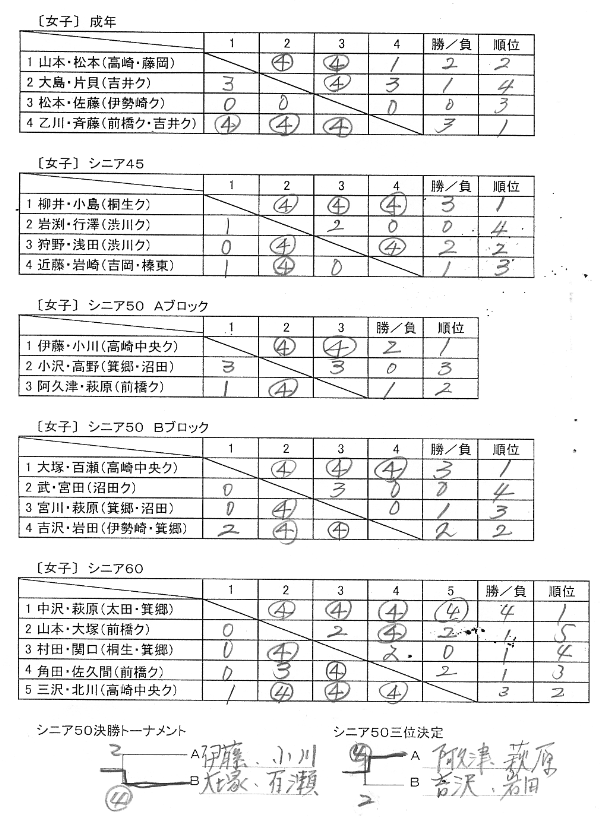 〔女子〕 成年
1 2 3 4 勝／負 順位
1 山本・松本(高崎・藤岡) ④ ④ 1 2 2
2 大島・片貝(吉井ク) 3 ④ 3 1 4
3 松本・佐藤(伊勢崎ク) 0 0 0 0 3
4 乙川・斉藤(前橋ク・吉井ク) ④ ④ ④ 3 1
〔女子〕 シニア45
1 2 3 4 勝／負 順位
1 柳井・小島(桐生ク) ④ ④ ④ 3 1
2 岩渕・行澤(渋川ク) 1 2 0 0 4
3 狩野・浅田(渋川ク) 0 ④ ④ 2 2
4 近藤・岩崎(吉岡・榛東) 1 ④ 0 1 3
〔女子〕 シニア50 Aブロック
1 2 3 勝／負 順位
1 伊藤・小川(高崎中央ク) ④ ④ 2 1
2 小沢・高野(箕郷・沼田) 3 3 0 3
3 阿久津・萩原(前橋ク) 1 ④ 1 2
〔女子〕 シニア50 Bブロック
1 2 3 4 勝／負 順位
1 大塚・百瀬(高崎中央ク) ④ ④ ④ 3 1
2 武・宮田(沼田ク) 0 3 0 0 4
3 宮川・萩原(箕郷・沼田) 0 ④ 0 1 3
4 吉沢・岩田(伊勢崎・箕郷) 2 ④ ④ 2 2
〔女子〕 シニア60
1 2 3 4 5 勝／負 順位
1 中沢・萩原(太田・箕郷) ④ ④ ④ ④ 4 1
2 山本・大塚(前橋ク) 0 2 ④ 2 1 5
3 村田・関口(桐生・箕郷) 0 ④ 2 0 1 4
4 角田・佐久間(前橋ク) 0 3 ④ 2 1 3
5 三沢・北川(高崎中央ク) 1 ④ ④ ④ 3 2
シニア50決勝トーナメント シニア50三位決定
2 A 伊藤、小川 ④ A 阿久津、萩原
④ B 大塚、百瀬 2 B 吉沢、岩田